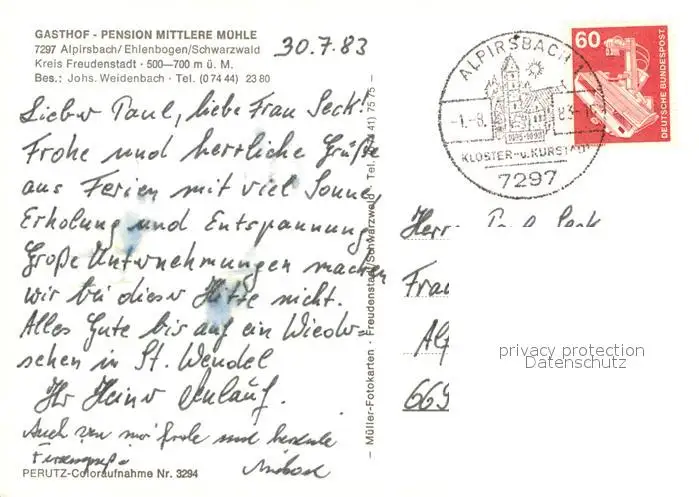 GASTHOF - PENSION MITTLERE MÜHLE
7297 Alpirsbach/Ehlenbogen/Schwarzwald
Kreis Freudenstadt · 500—700 m ü. M.
Bes.: Johs. Weidenbach · Tel. (0 74 44) 23 80
30.7.83
Lieber Paul, liebe Frau Seck!
Frohe und herrliche Grüße
aus Ferien mit viel Sonne,
Erholung und Entspannung.
Große Unternehmungen machen
wir bei dieser Hitze nicht.
Alles Gute bis auf ein Wieder=
sehen in St. Wendel
Ihr Heiner
Auch von mir frohe und
PERUTZ-Coloraufnahme Nr. 3294
— Müller-Fotokarten · Freudenstadt/Schwarzwald · Tel. 41) 75 75 —
ALPIRSBACH 1
-1.-8. 83-
KLOSTER-u.KURSTADT
7297
60
DEUTSCHE BUNDESPOST
Herrn Paul Seck
Frau
Alp
669
privacy protection
Datenschutz